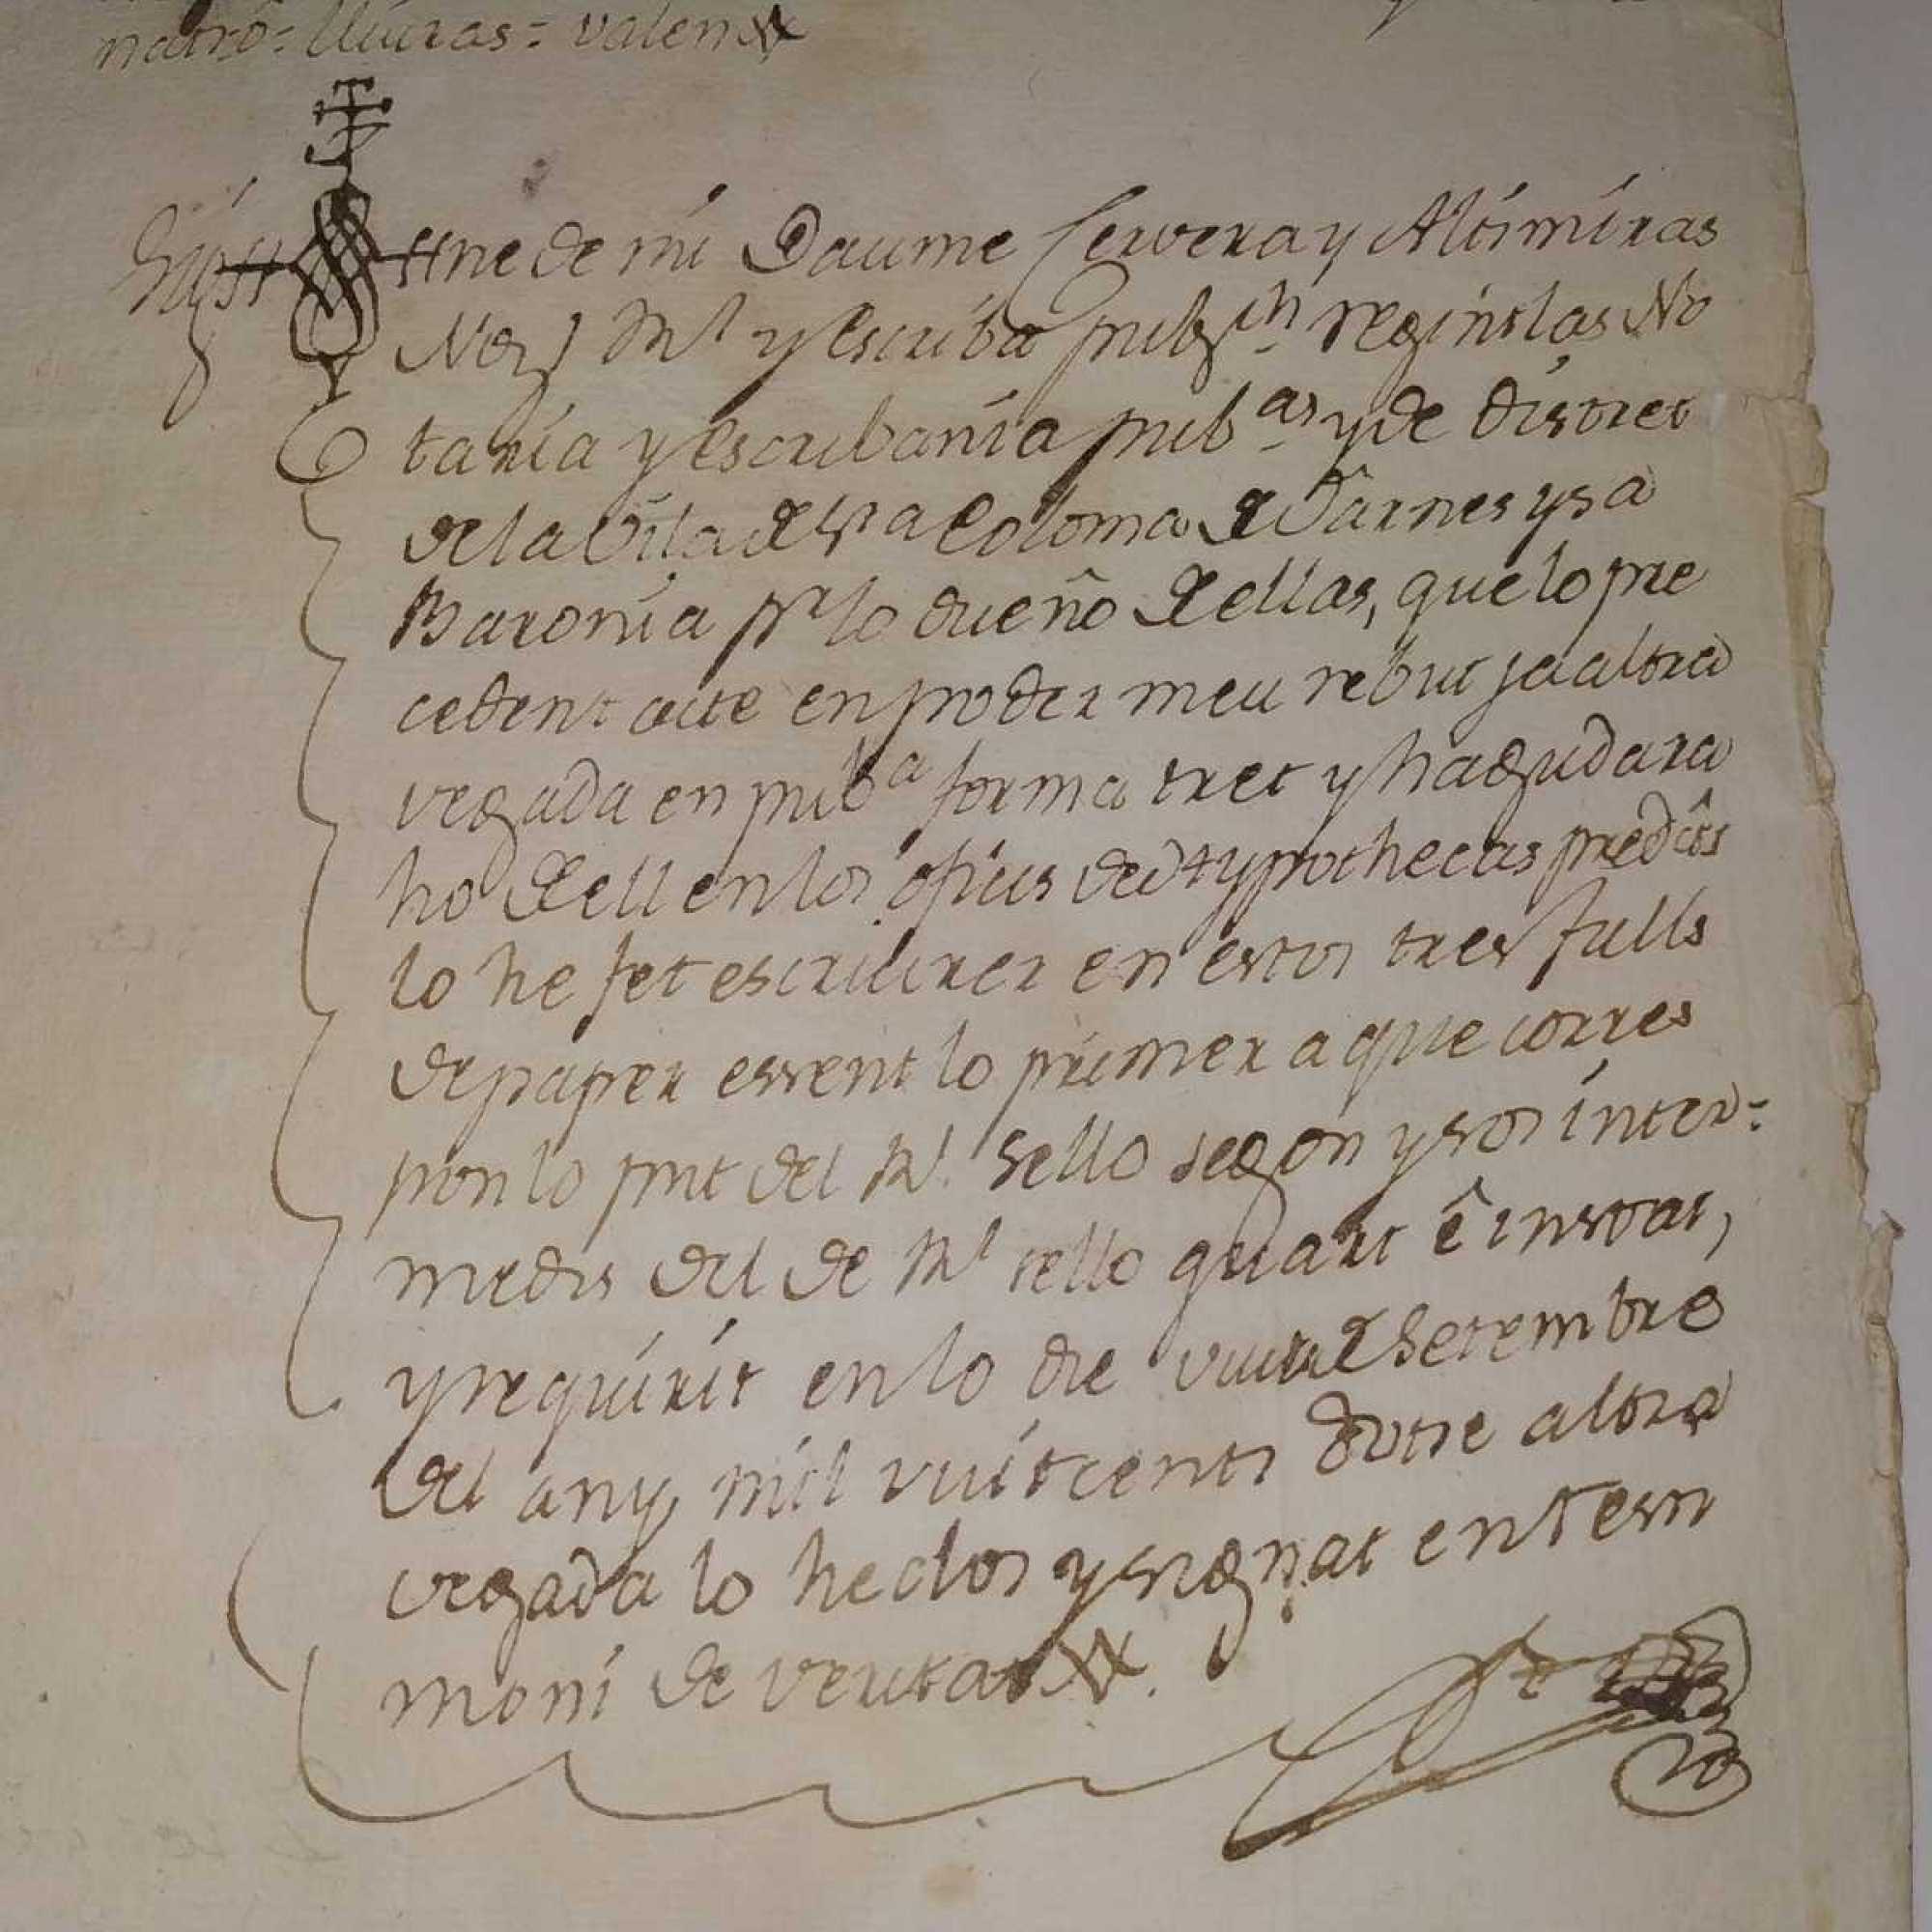 lliuras = valen
Sig ne de mi Jaume Cervera y Altimiras
Not. Rl. y escriba pubch. regint las No
taria y escribania pubas. y de districte
de la Vila de Sta Coloma de Farnes y sa
Baronia pr lo dueño de ellas, que lo pre
cedent acte en poder meu rebut ja altra
vegada en puba forma tret y haguda ra
ho de ell en los oficis de Hypothecas predits
lo he fet escriurer en estos tres fulls
de paper essent lo primer a que corres
pon lo pnt del Rl. sello segon y los inter=
medis del de Rl sello quart é instat,
y requirit en lo die vuit de Setembre
del any mil vuitcents dotse altra
vegada lo he clos y signat en testi
moni de veritat.